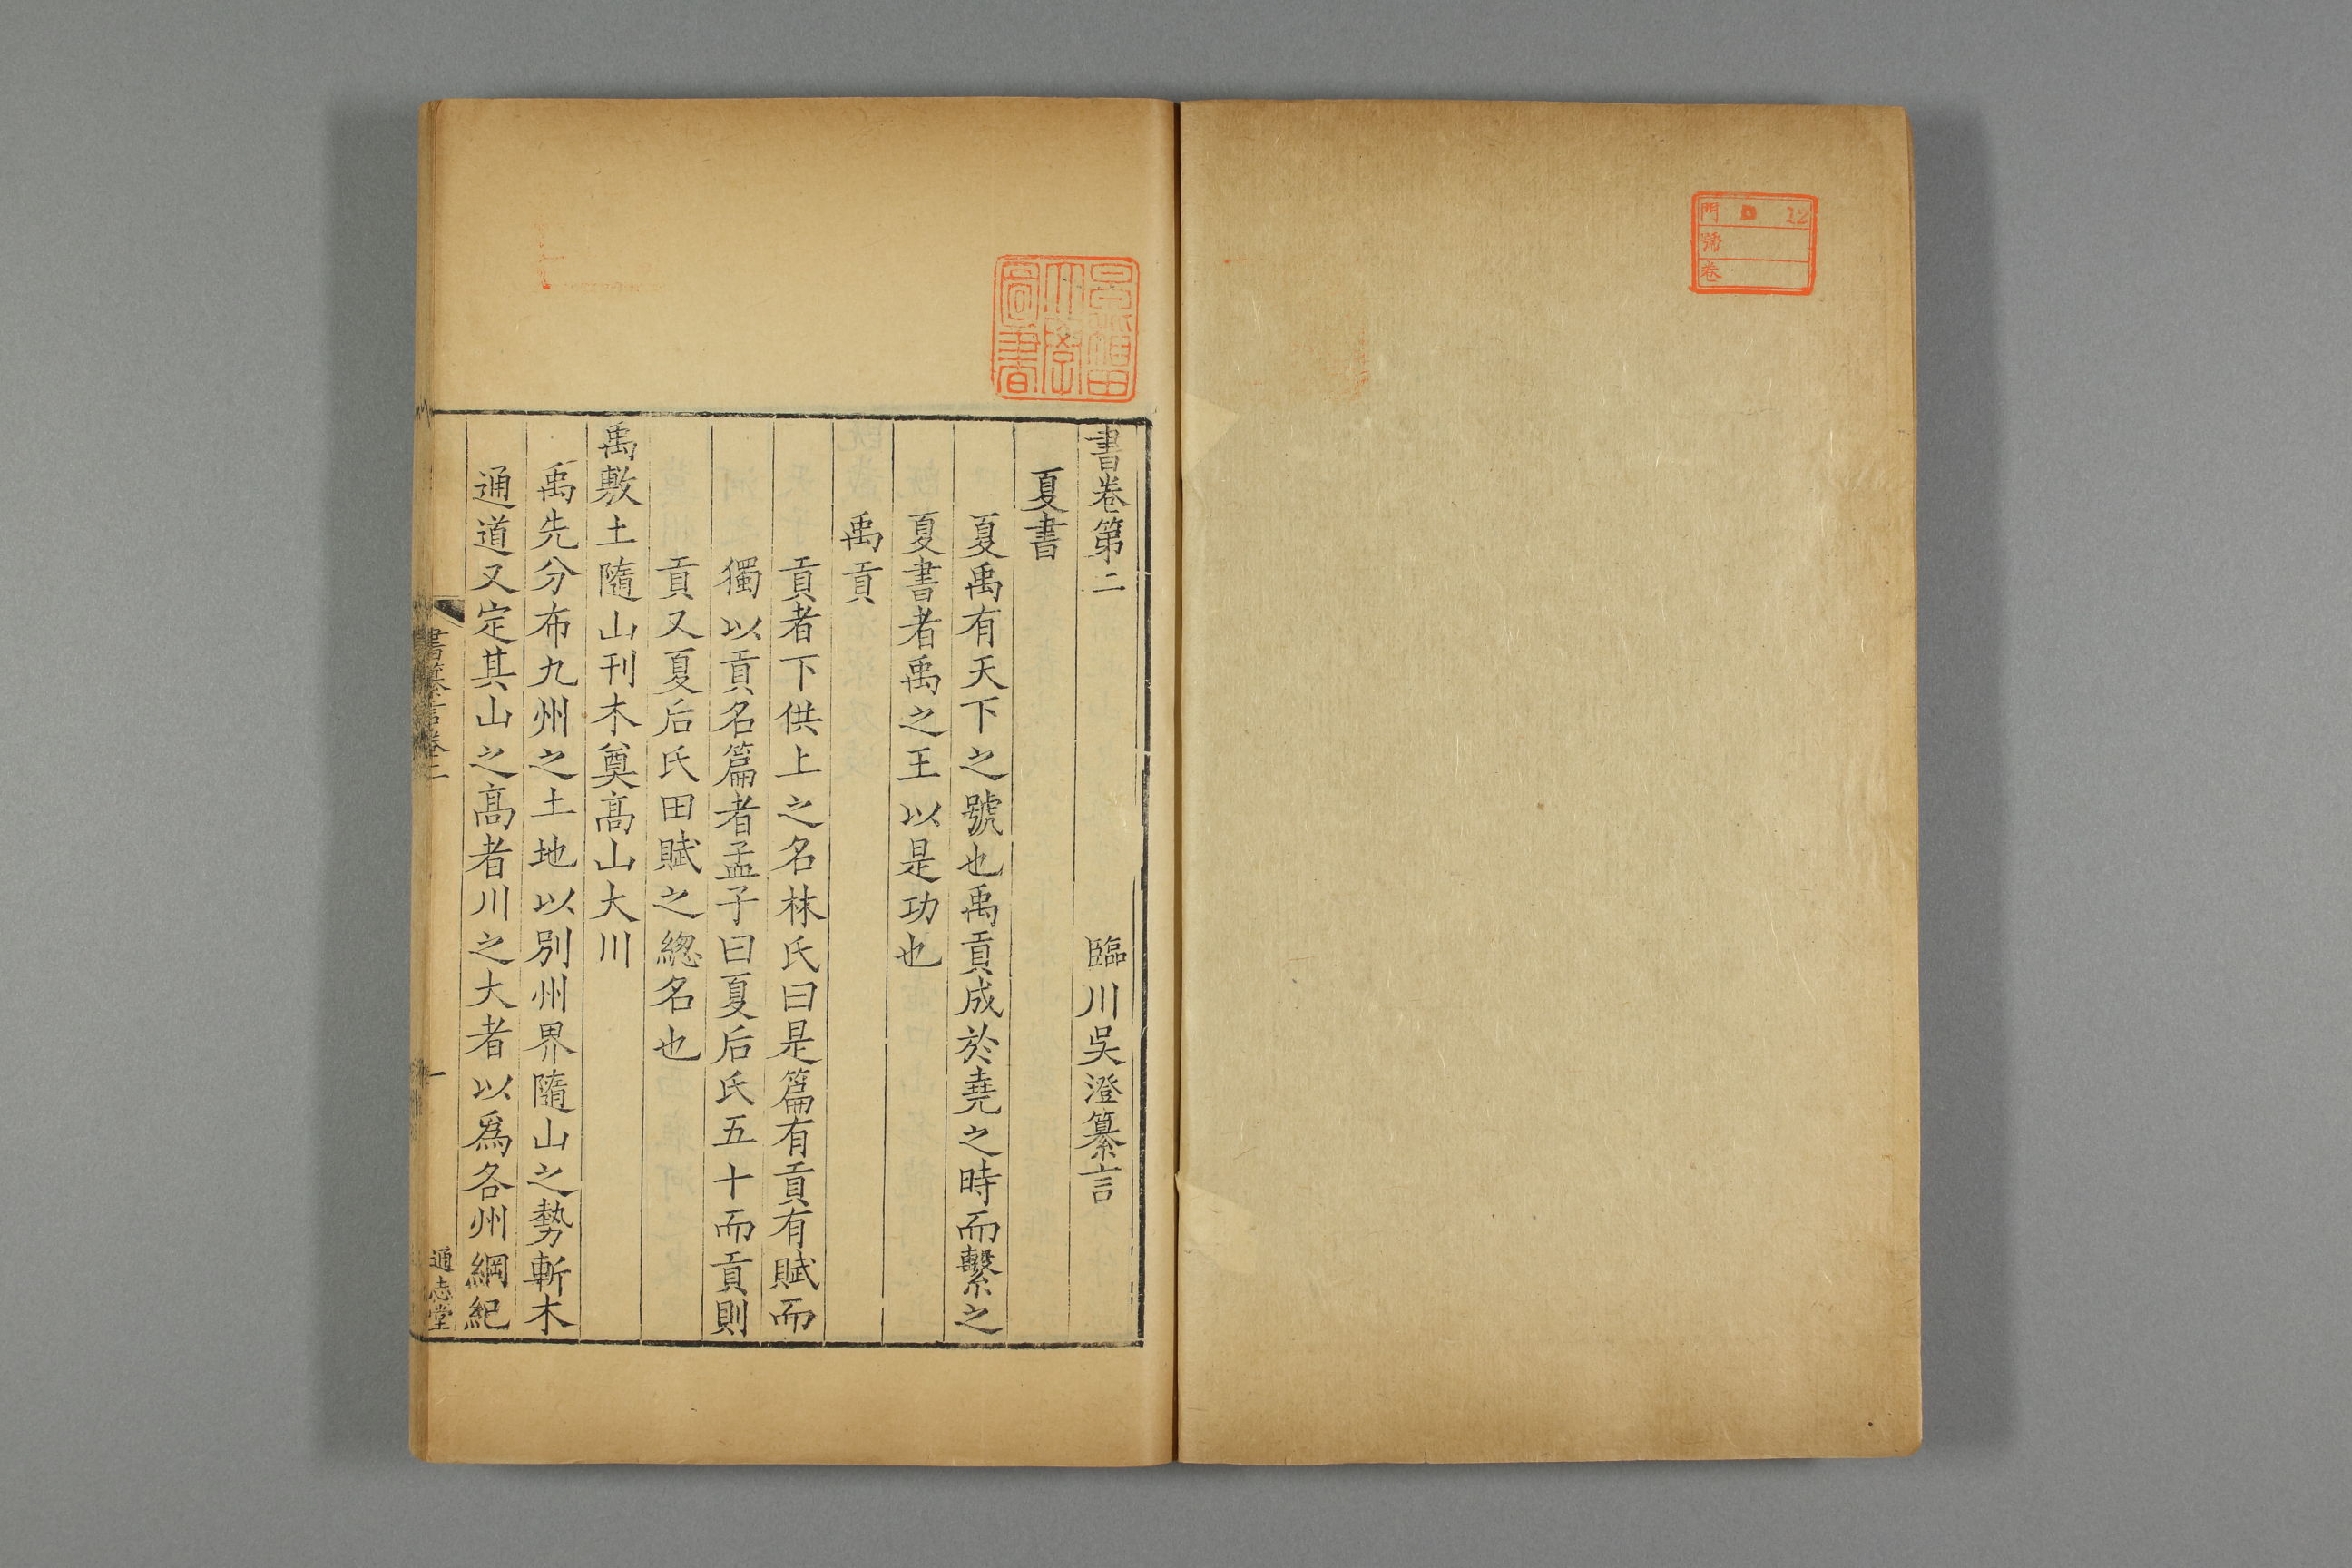 門 口 12
號
卷
早稲田大學圖書
書卷第二 臨川吳澄纂言
夏書
夏禹有天下之號也禹貢成於堯之時而繫之
夏書者禹之王以是功也
禹貢
貢者下供上之名林氏曰是篇有貢有賦而
獨以貢名篇者孟子曰夏后氏五十而貢則
貢又夏后氏田賦之緫名也
禹敷土隨山刊木奠髙山大川
禹先分布九州之土地以別州界隨山之勢斬木
通道又定其山之髙者川之大者以爲各州綱紀
書纂言卷二
一
通志堂